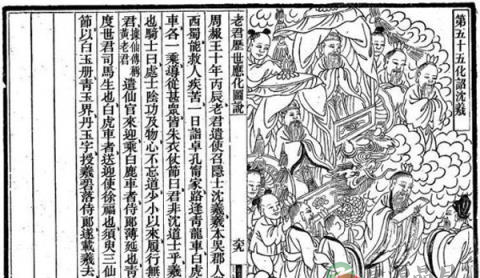 第五十五化詔沈羲
老君歷世應化圖說
周赧王十年丙辰老君遣使召隱士沈羲羲本吳郡人
西蜀能救人疾苦一日詣卓孔甯家路逢青龍車白虎
車各一乘導從甚眾皆朱衣仗節曰君非沈道士乎羲
也騎士曰處士陰功及物心不忘道少小以來履行無
君據仙傳稱黃老君遣仙官來迎乘白鹿車者侍郎薄延也青
度世君司馬生也白虎車者送迎使徐福也須臾三仙
節以白玉冊青玉界丹玉字授羲碧落侍郎遂載羲去